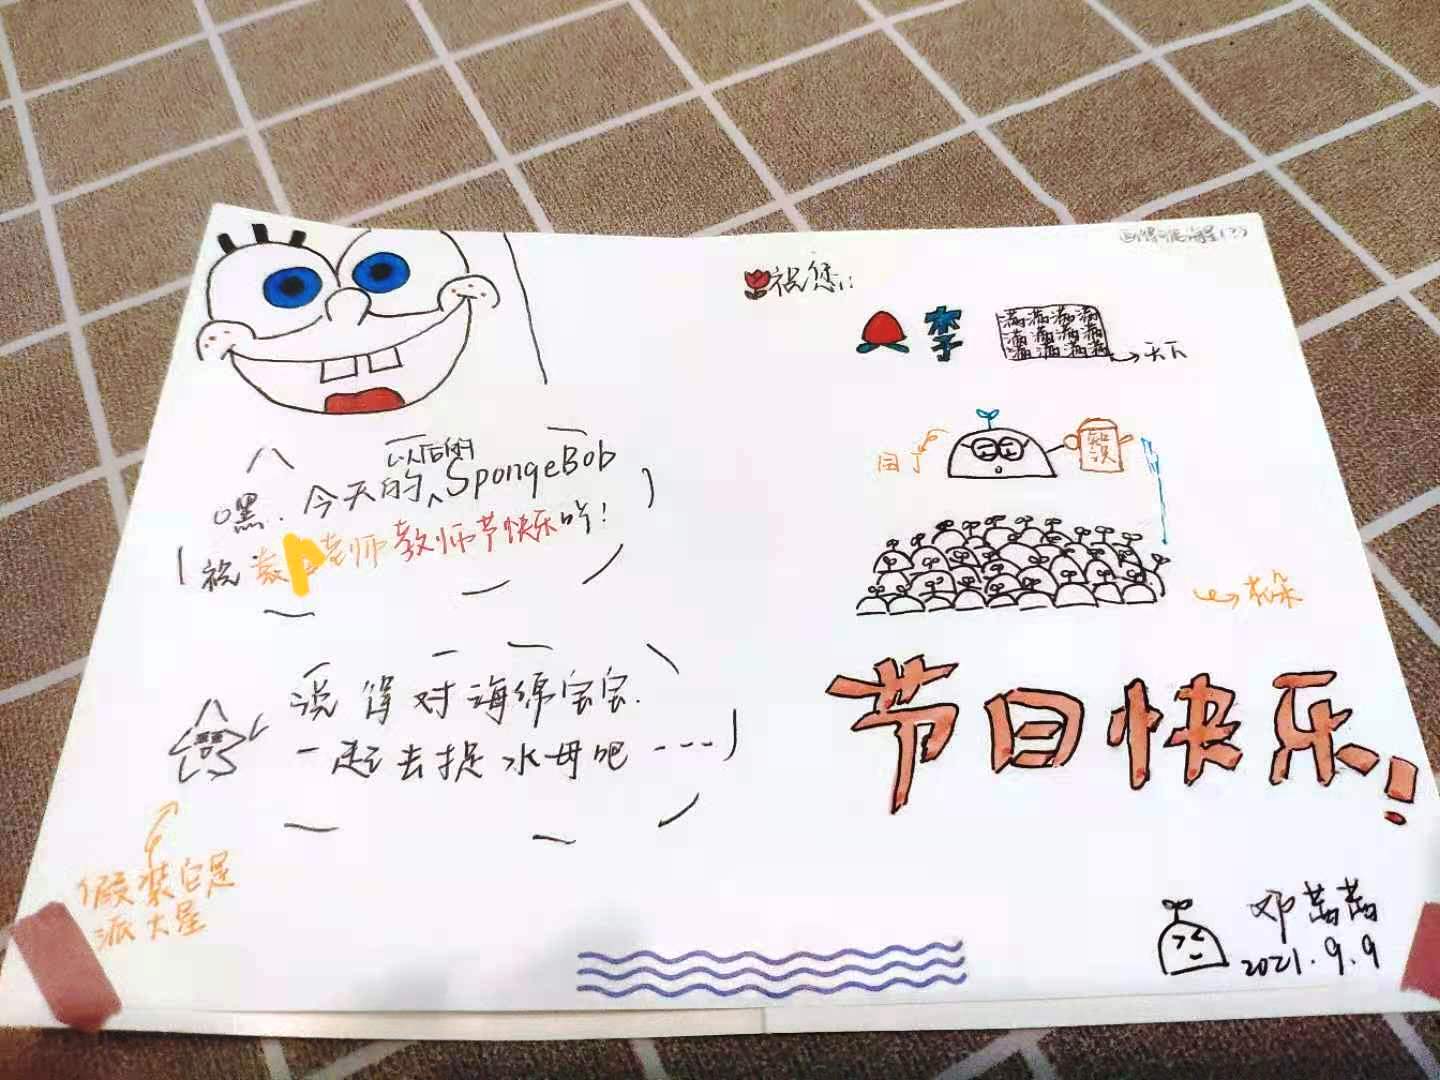 嘿.今天的SpongeBob
以后的
祝袁老师教师节快乐吖!
说得对海绵宝宝.
一起去捉水母吧----
假装它是
派大星
祝您:
李
满满满满
满满满满
满满满满
天下
园丁
知识
花朵
节日快乐!
邓茜茜
2021.9.9